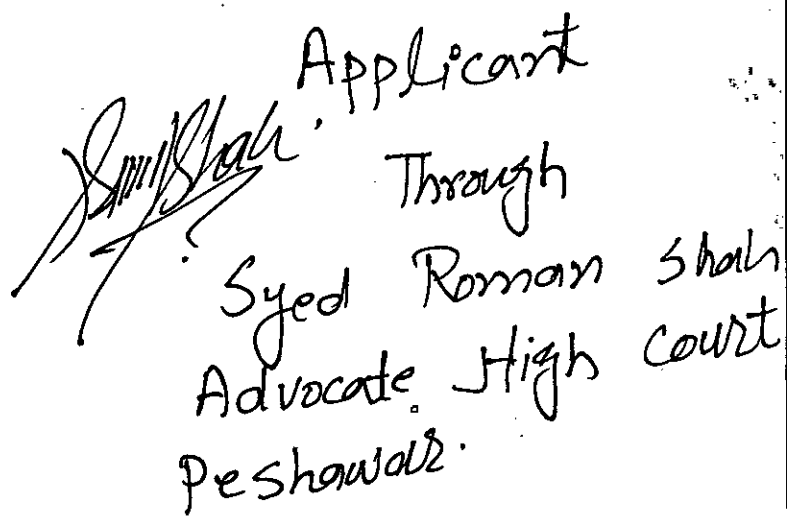 Applicant
Shah.
Through
Syed Roman Shah
Advocate High Court
Peshawar.